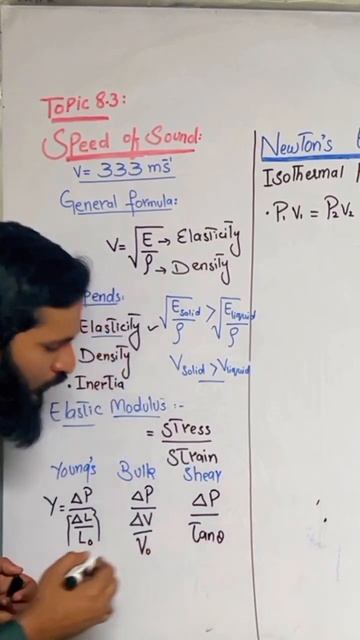 Topic 8.3:
Speed of Sound:
V = 333 ms⁻¹
General formula:
V = √(E/ρ) → Elasticity
→ Density
pends:
Elasticity ✓ √(Esolid/ρ) > √(Eliquid/ρ)
Density
Vsolid > Vliquid
• Inertia
Elastic Modulus :-
= Stress / Strain
Young's Bulk Shear
Y = ΔP/(ΔL/L₀) ΔP/(ΔV/V₀) ΔP/Tanθ
Newton's
Isothermal
• P₁V₁ = P₂V₂